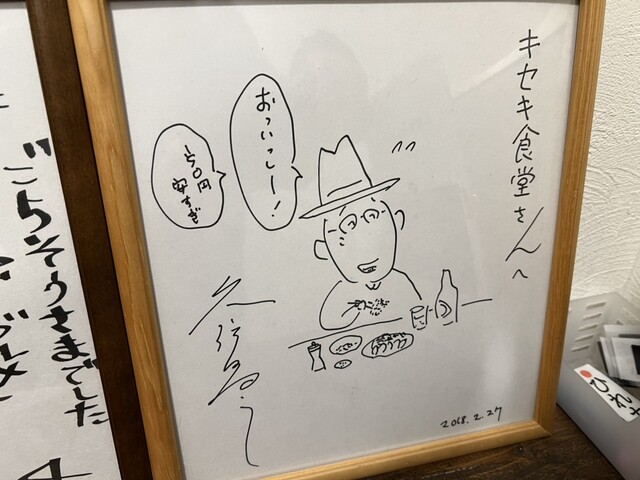 キセキ食堂さんへ
おっいっしー！
150円
安すぎ
久住昌之
2018.2.27
ごちそうさまでした
グルメ